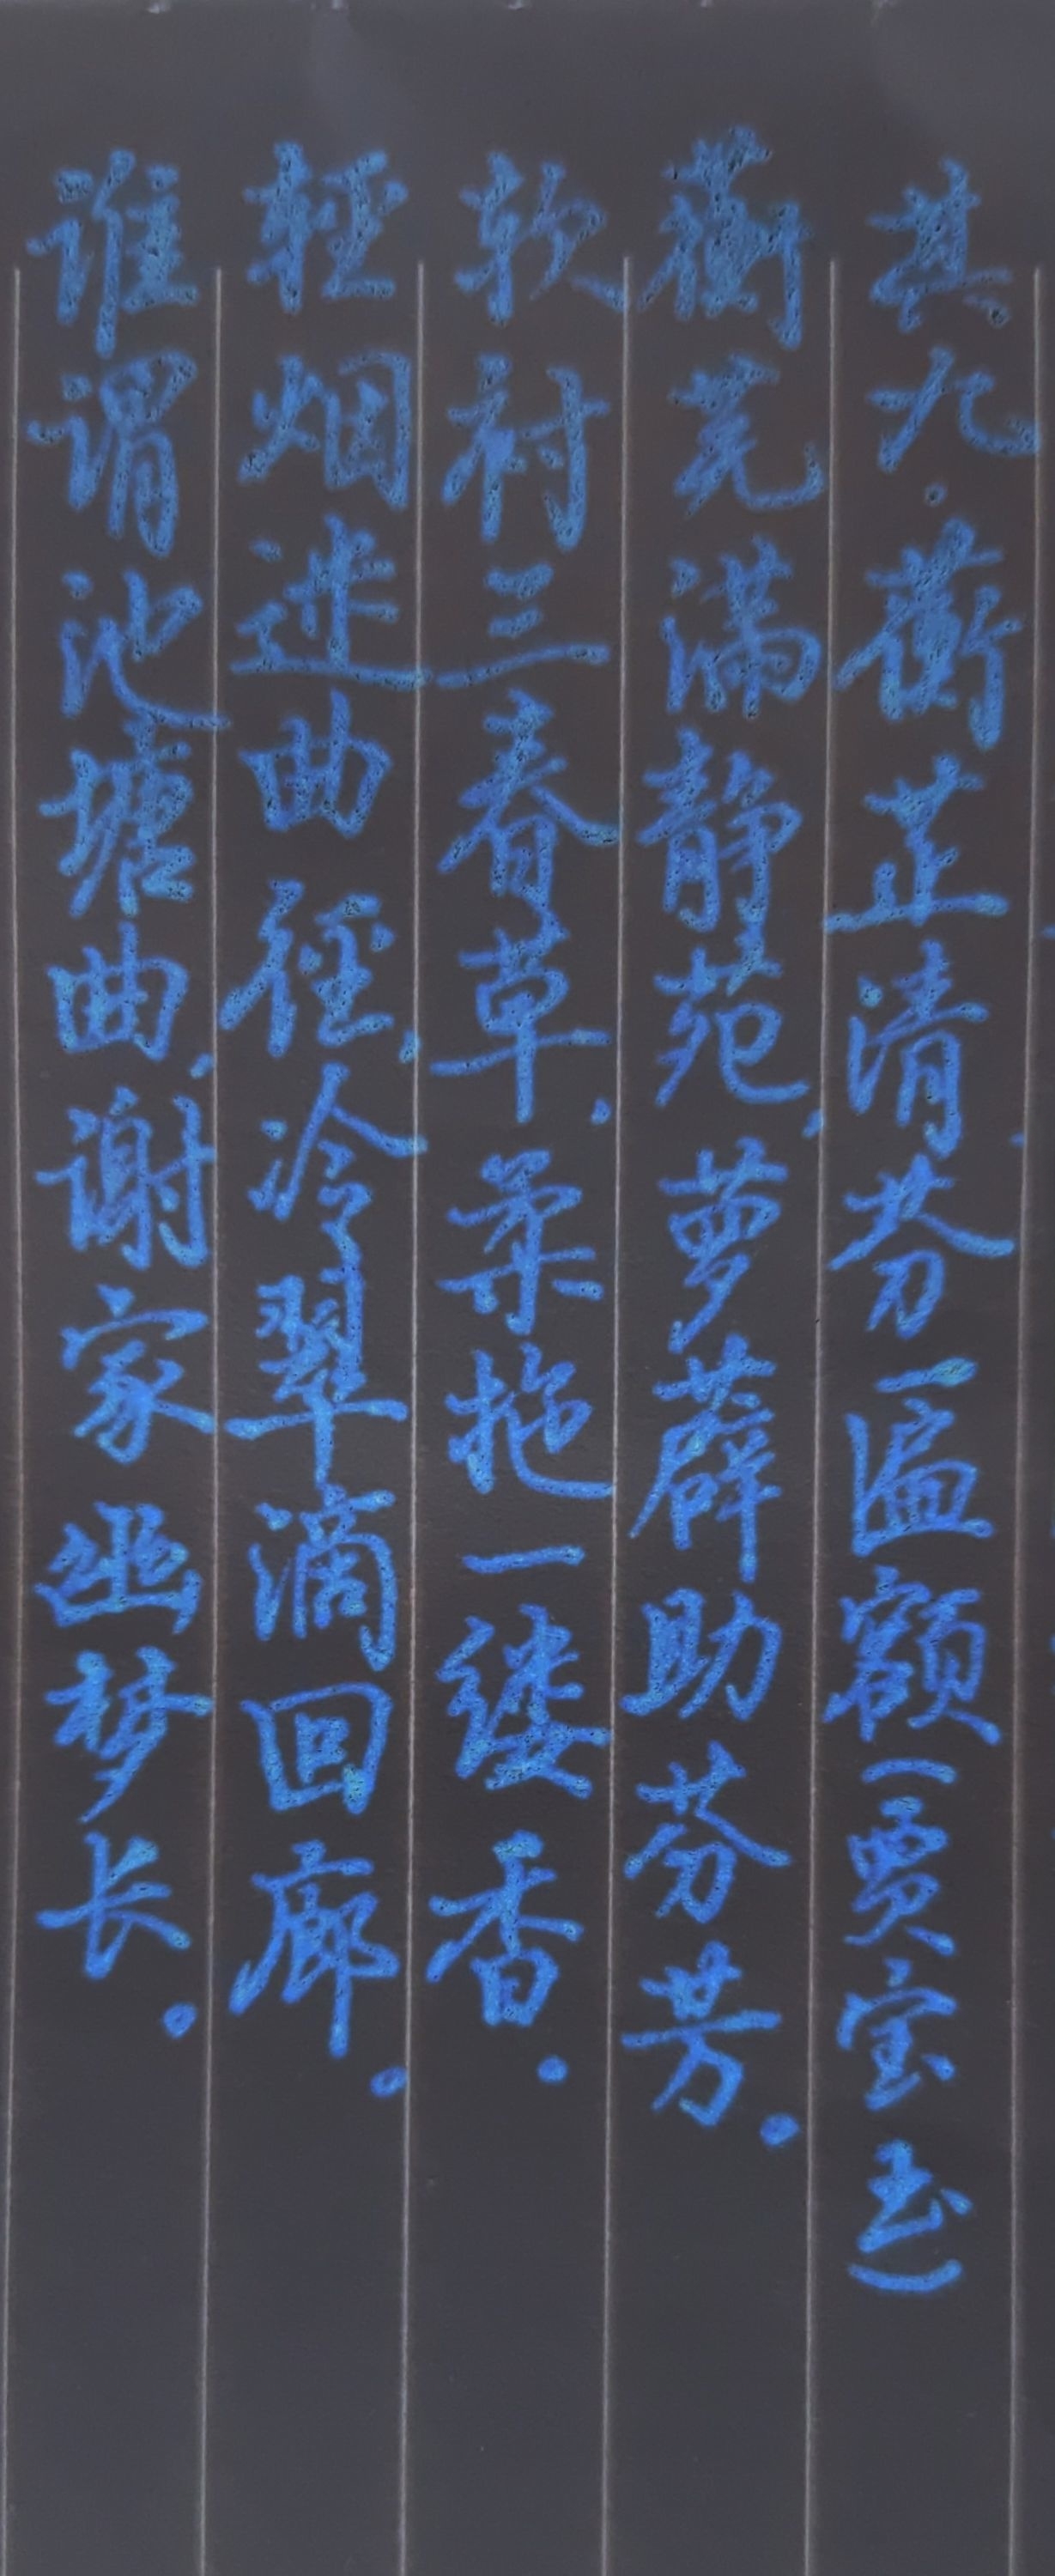 其九·蘅芷清芬(匾额)(贾宝玉)
蘅芜满静苑,萝薜助芬芳。
软衬三春草,柔拖一缕香。
轻烟迷曲径,冷翠滴回廊。
谁谓池塘曲,谢家幽梦长。